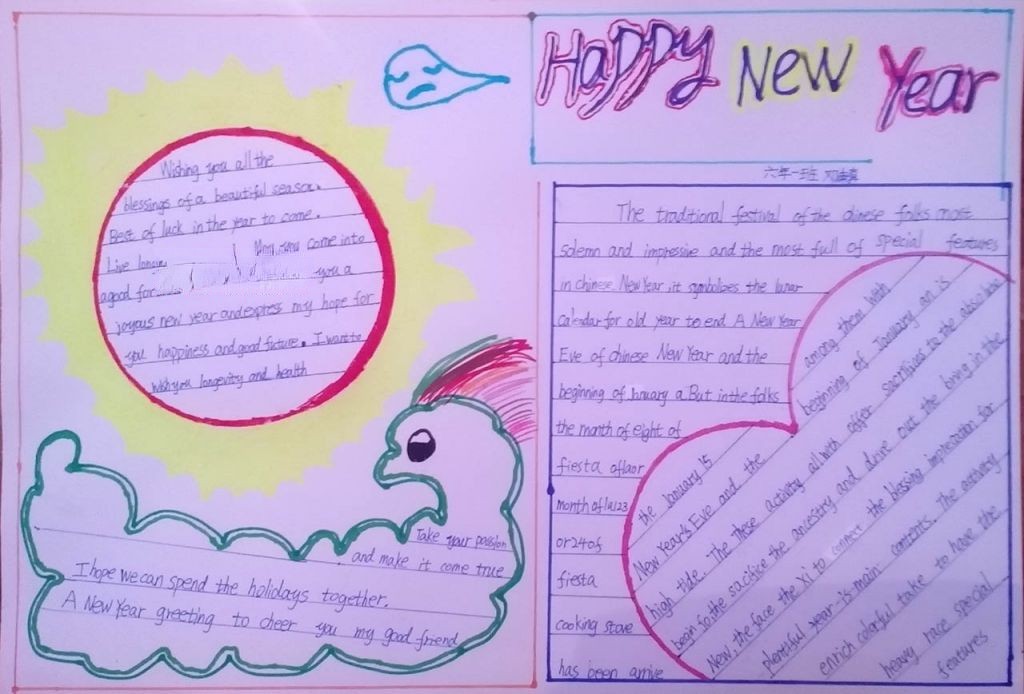 Happy New Year
六年一班
Wishing you all the
blessings of a beautiful season.
Best of luck in the year to come.
Live longe May you come into
a good for you a
joyous new year and express my hope for
you happiness and good future. I want to
wish you longevity and health
Take your passion
and make it come true
I hope we can spend the holidays together.
A New Year greeting to cheer you my good friend
The traditional festival of the chinese folks most
solemn and impressive and the most full of special features
in chinese New Year, it symbolizes the lunar
calendar for old year to end A New Year
Eve of chinese New Year and the
beginning of January a. But in the folks
the month of eight of
fiesta oflaor
month of la123
or 24 of
fiesta
cooking stove
has been arrive
among them with
beginning of January an is
the January 15 sacrifices to the absor
New Year's Eve and the all with offer bring in the
high tide. The These activity and drive out the
begin fo the sacrifice the ancestry the blessing imprecation for
New, the face the Xi to connect contents. The activity
plentiful year is main to have the
enrich colorful take
heavy race special
features